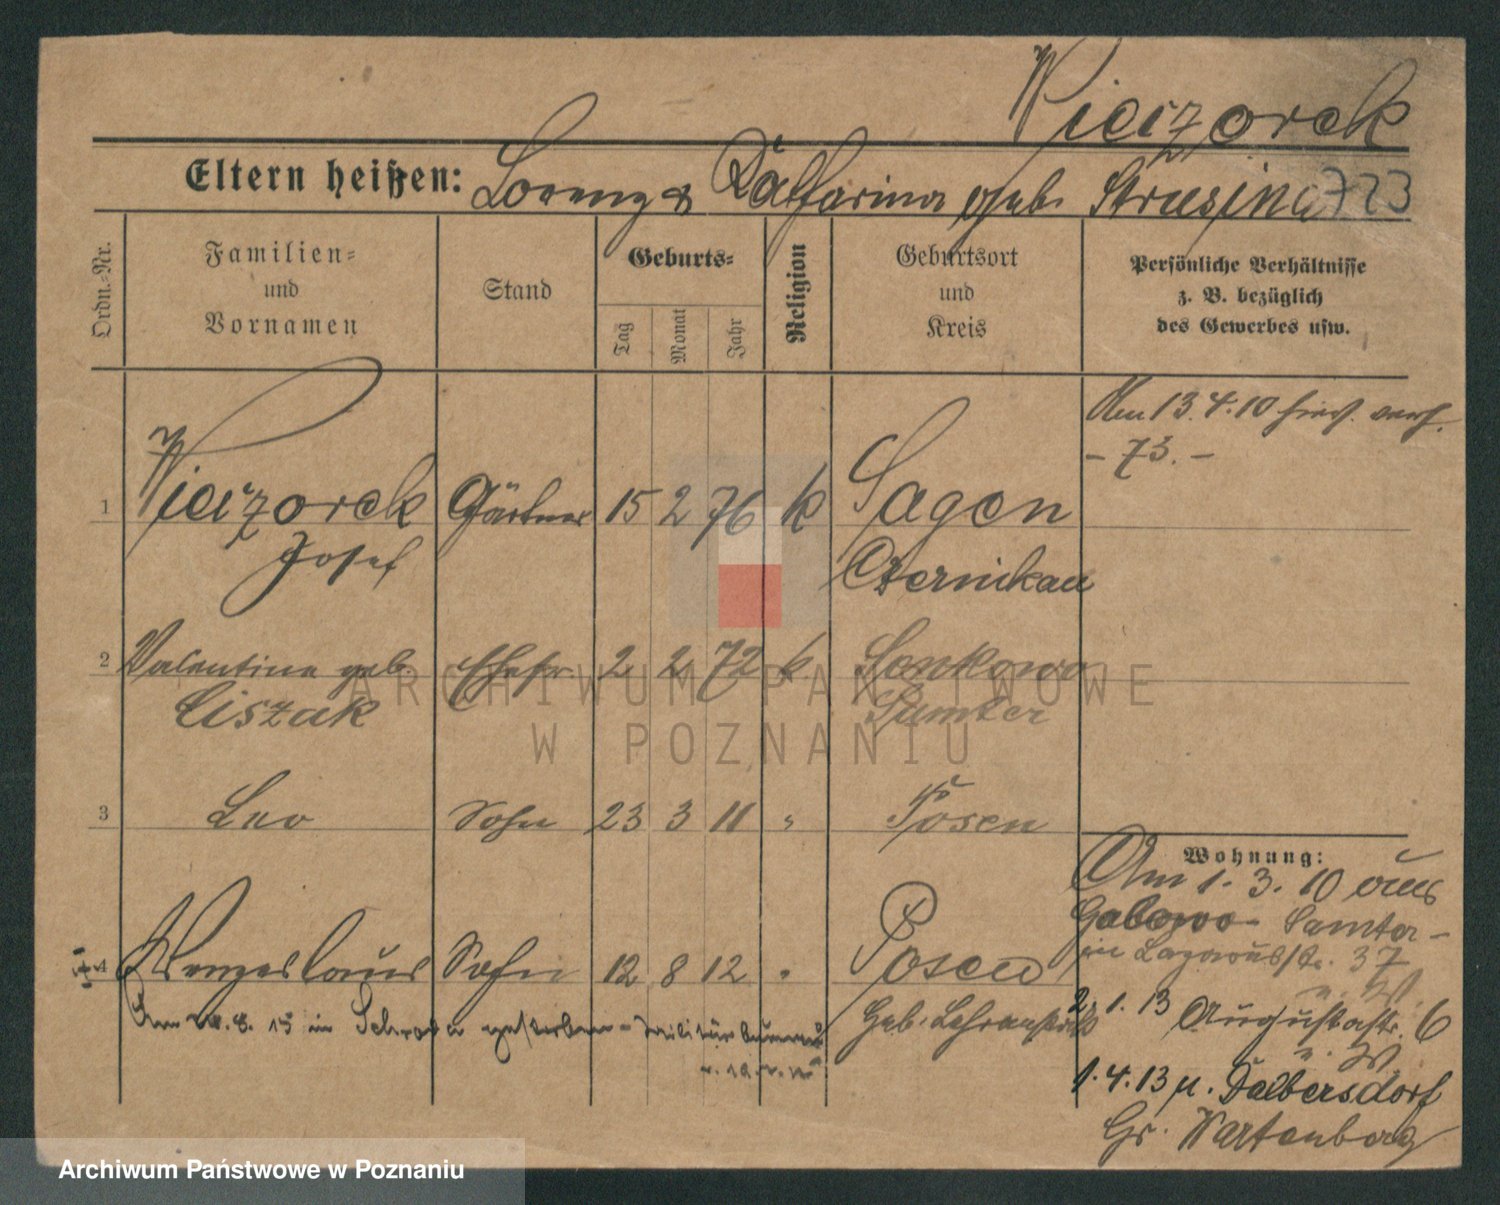 Wieczorek
Eltern heißen: Lorenz & Katharina geb. Struszina 723
Ordn.-Nr.
Familien-
und
Vornamen
Stand
Geburts-
Tag
Monat
Jahr
Religion
Geburtsort
und
Kreis
Persönliche Verhältnisse
z. B. bezüglich
des Gewerbes usw.
Am 13.4.10
- 73. -
1 Wieczorek Gärtner 15 2 76 k Sagen
Josef Czarnikau
2 Valentine geb. Ehefr. 2 2 72 k.
Ciszak Samter
3 Leo Sohn 23 3 11 " Posen
Wohnung:
Am 1.3.10 aus
Galowo - Samter -
in Lazarusstr. 37
4 Wenzeslaus Sohn 12 8 12 " Posen
Geb. Lehranstalt
Am 8. 15 in Schroda gestorben
2. 1. 13 Augustastr. 6
n. W.
1.4.13 n. Dalbersdorf
Gr. Wartenberg
ARCHIWUM PAŃSTWOWE
W POZNANIU
Archiwum Państwowe w Poznaniu